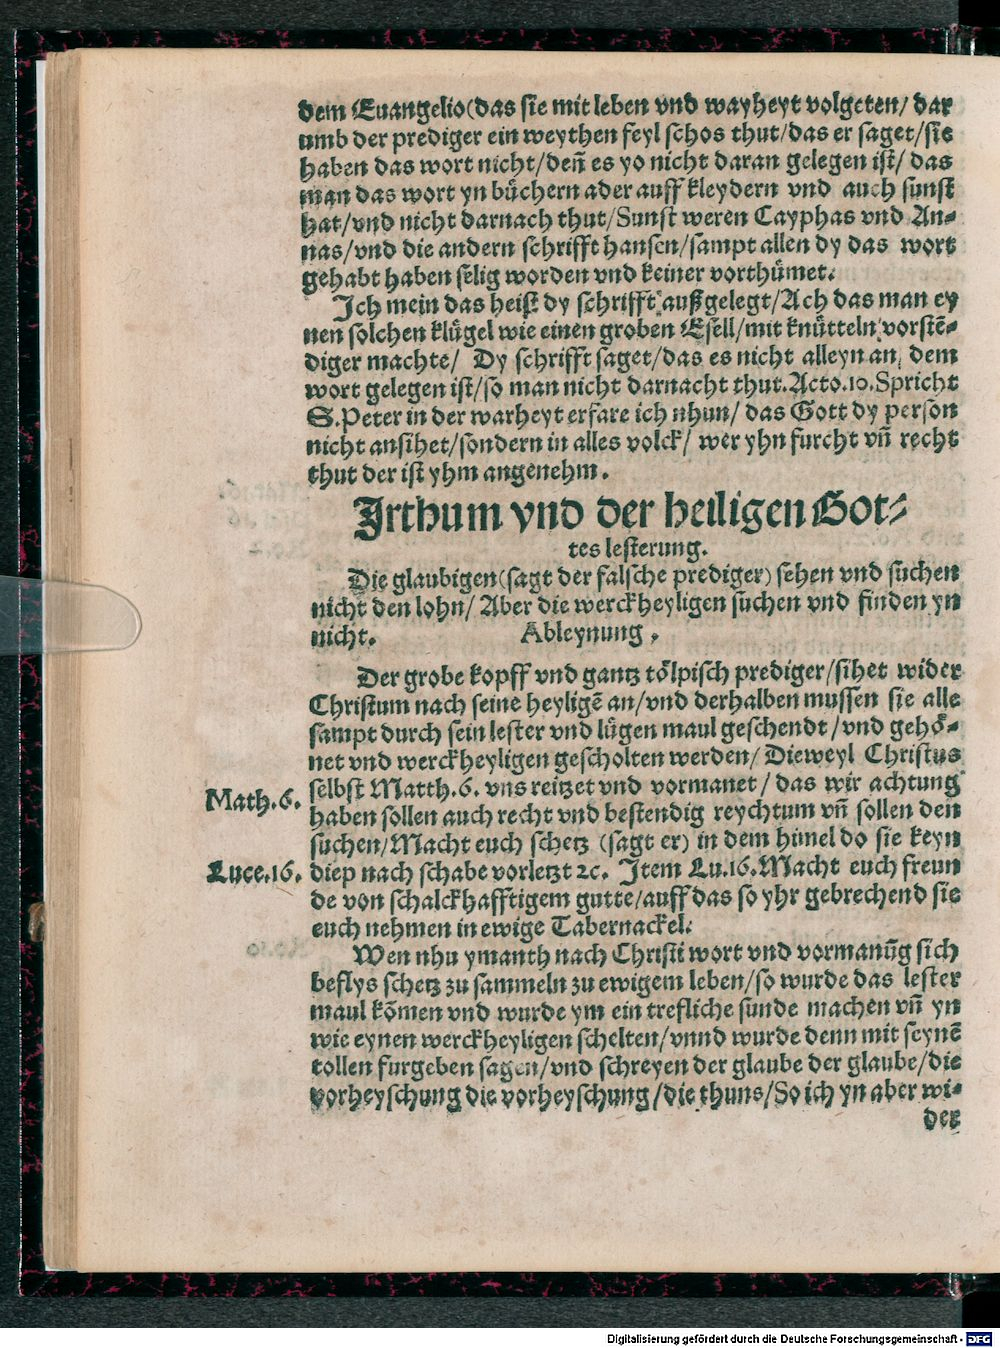 dem Euangelio(das sie mit leben vnd wayheyt volgeten/ dar
umb der prediger ein weythen feyl schos thut/das er saget/sie
haben das wort nicht/deñ es yo nicht daran gelegen ist/ das
man das wort yn bůchern ader auff kleydern vnd auch sunst
hat/vnd nicht darnach thut/Sunst weren Cayphas vnd An⸗
nas/vnd die andern schrifft hansen/sampt allen dy das wort
gehabt haben selig worden vnd keiner vorthůmet.
Ich mein das heist dy schrifft außgelegt/Ach das man ey
nen solchen klůgel wie einen groben Esell/mit knůtteln vorstē⸗
diger machte/ Dy schrifft saget/das es nicht alleyn an dem
wort gelegen ist/so man nicht darnacht thut.Acto.10.Spricht
S.Peter in der warheyt erfare ich nhun/ das Gott dy person
nicht ansihet/sondern in alles volck/ wer yhn furcht vñ recht
thut der ist yhm angenehm.
Irthum vnd der heiligen Got⸗
tes lesterung.
Die glaubigen(sagt der falsche prediger) sehen vnd suchen
nicht den lohn/ Aber die werckheyligen suchen vnd finden yn
nicht. Ableynung.
Der grobe kopff vnd gantz tőlpisch prediger/sihet wider
Christum nach seine heyligē an/vnd derhalben mussen sie alle
sampt durch sein lester vnd lůgen maul geschendt/vnd gehő⸗
net vnd werckheyligen gescholten werden/ Dieweyl Christus
Math.6. selbst Matth.6. vns reitzet vnd vormanet/ das wir achtung
haben sollen auch recht vnd bestendig reychtum vñ sollen den
suchen/Macht euch schetz (sagt er) in dem himel do sie keyn
Luce.16. diep nach schabe vorletzt ꝛc. Item Lu.16.Macht euch freun
de von schalckhafftigem gutte/auff das so yhr gebrechend sie
euch nehmen in ewige Tabernackel.
Wen nhu ymanth nach Christi wort vnd vormanūg sich
beflys schetz zu sammeln zu ewigem leben/so wurde das lester
maul kōmen vnd wurde ym ein trefliche sunde machen vñ yn
wie eynen werckheyligen schelten/vnnd wurde denn mit seynē
tollen furgeben sagen/vnd schreyen der glaube der glaube/die
vorheyschung die vorheyschung/die thuns/So ich yn aber wi⸗
der
Digitalisierung gefördert durch die Deutsche Forschungsgemeinschaft - DFG